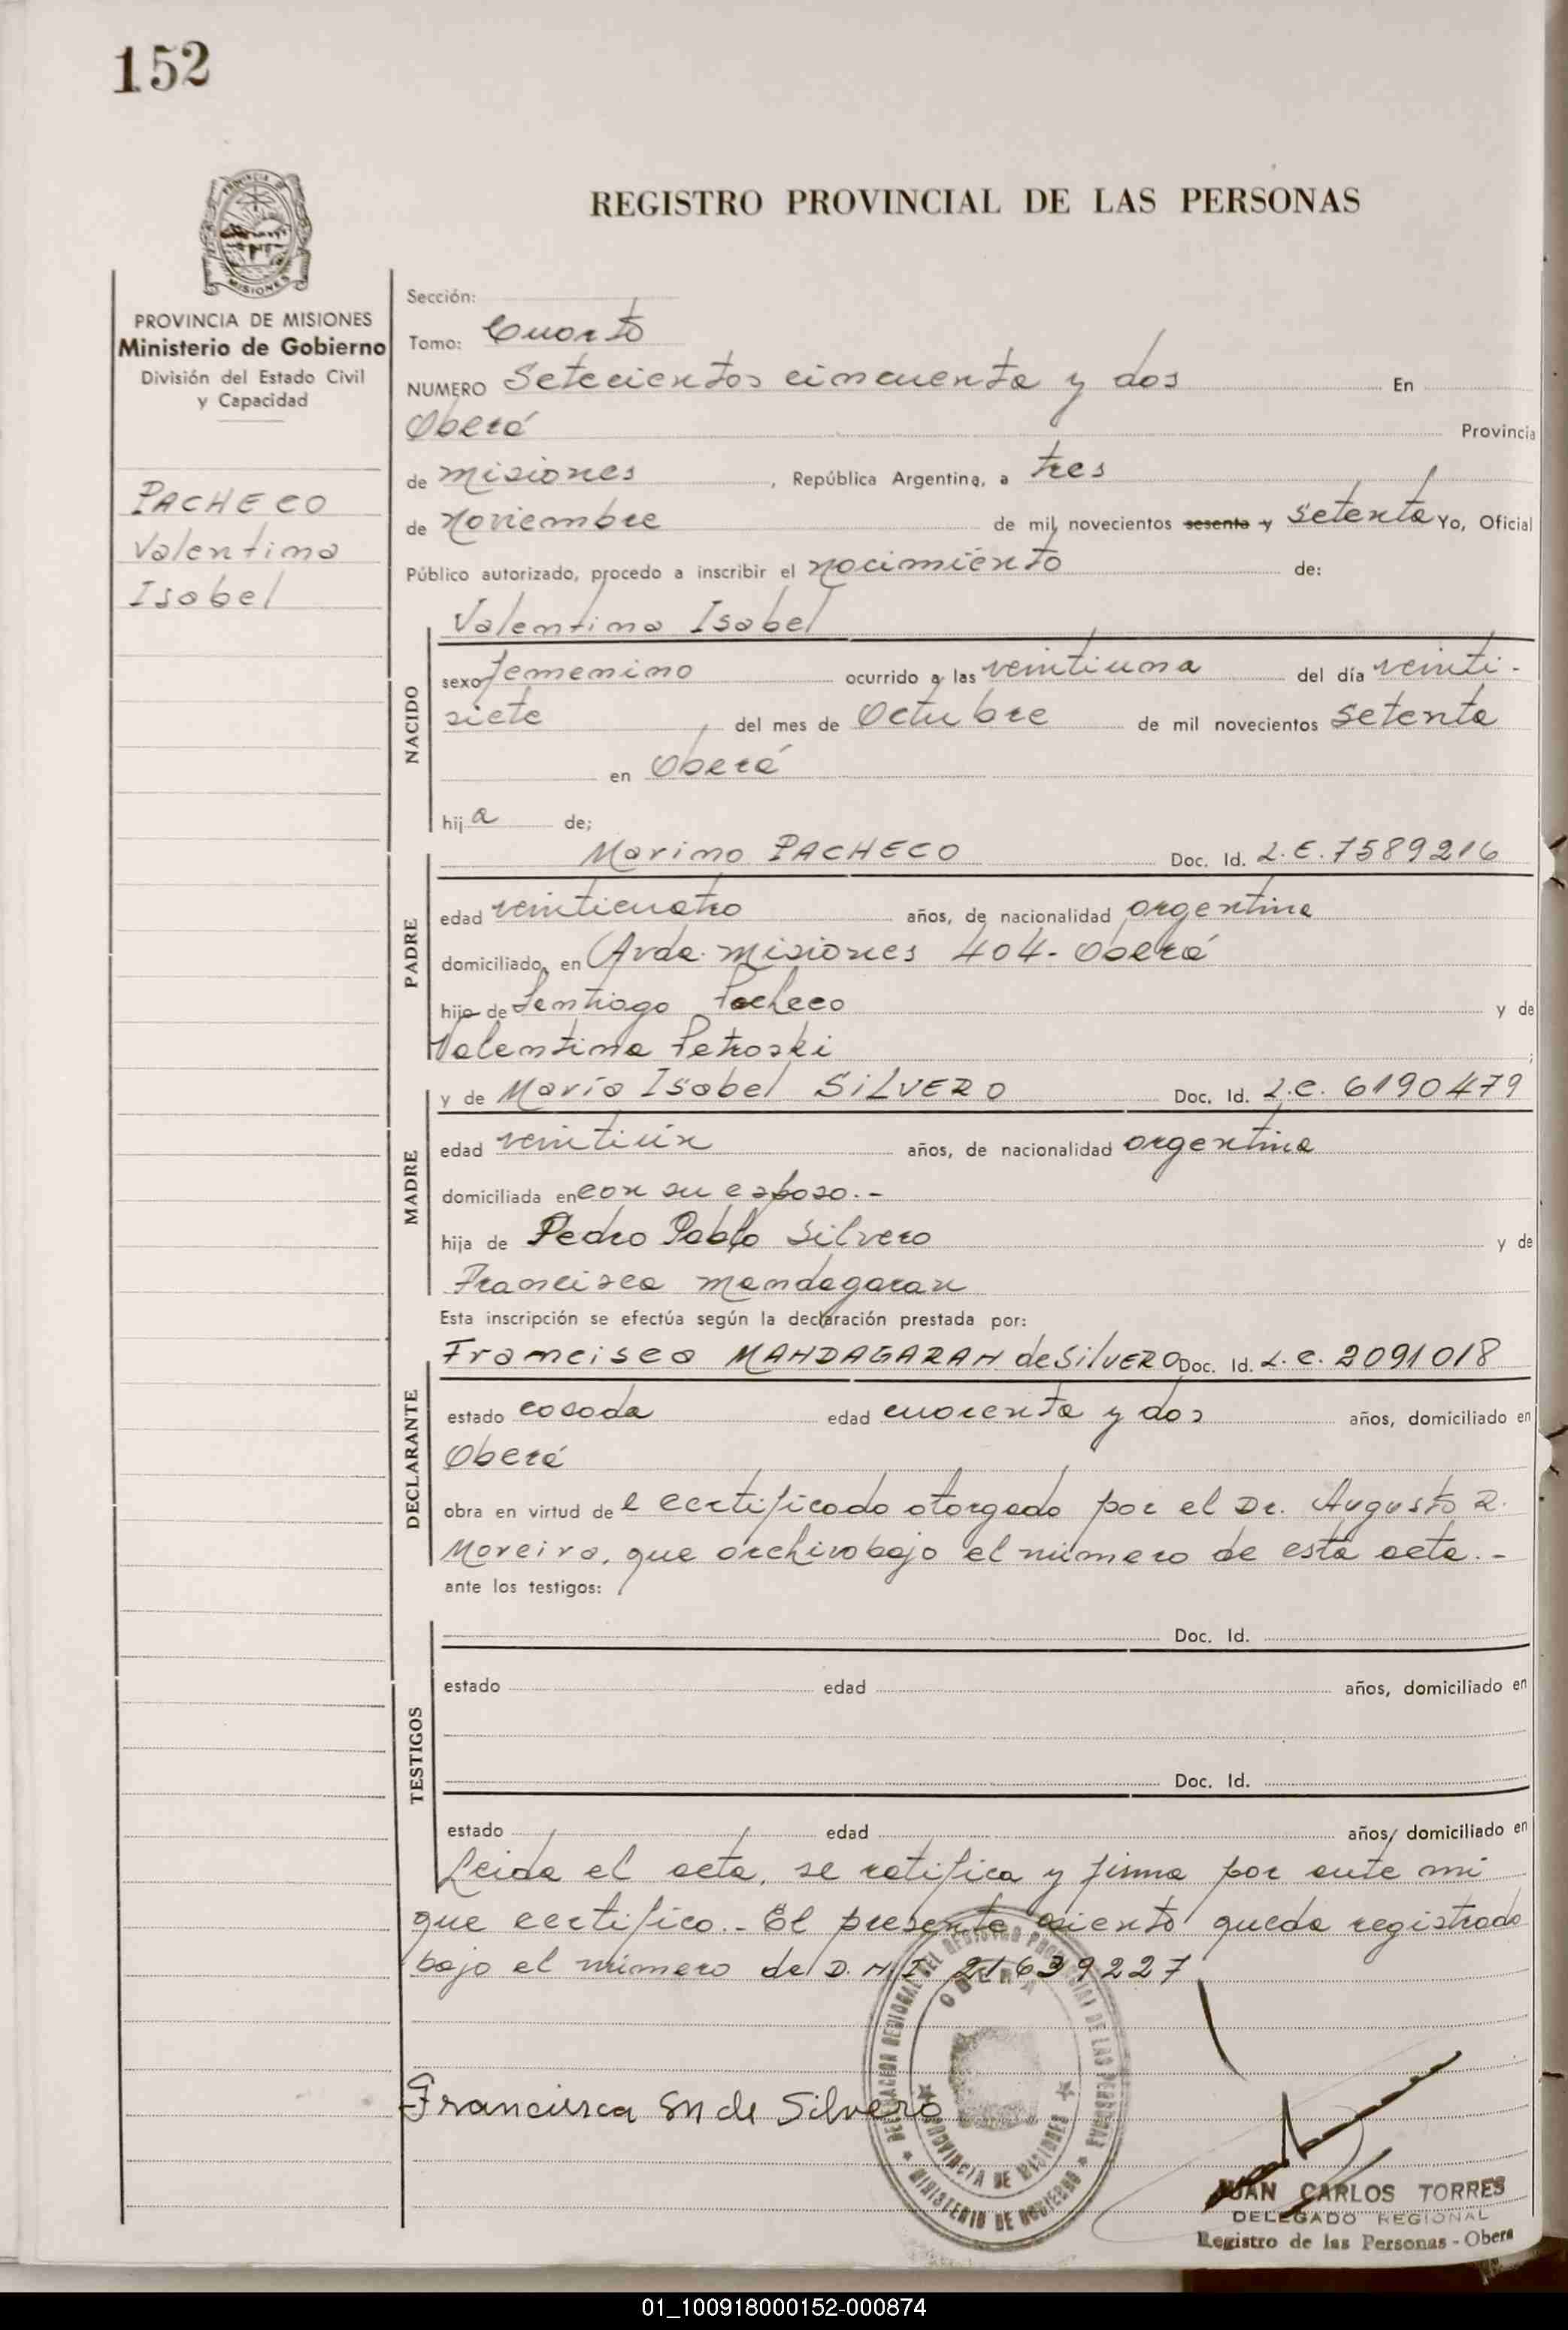 152
REGISTRO PROVINCIAL DE LAS PERSONAS
MISIONES
PROVINCIA DE MISIONES
Ministerio de Gobierno
División del Estado Civil
y Capacidad
PACHECO
Valentina
Isabel
Sección:
Tomo: Cuarto
NUMERO Setecientos cincuenta y dos En
Oberá Provincia
de Misiones, República Argentina, a tres
de Noviembre de mil novecientos sesenta y setenta Yo, Oficial
Público autorizado, procedo a inscribir el nacimiento de:
Valentina Isabel
NACIDO
sexo femenino ocurrido a las veintiuna del día veinti-
siete del mes de Octubre de mil novecientos setenta
en Oberá
hija de;
PADRE
Marino PACHECO Doc. Id. L.E. 7589216
edad veinticuatro años, de nacionalidad argentina
domiciliado, en Avda. Misiones 404- Oberá
hijo de Santiago Pacheco y de
Valentina Petroski;
MADRE
y de María Isabel SILVERO Doc. Id. L.C. 6190479
edad veintiún años, de nacionalidad argentina
domiciliada en con su esposo.-
hija de Pedro Pablo Silvero y de
Francisca Mandagaran
Esta inscripción se efectúa según la declaración prestada por:
DECLARANTE
Francisca MANDAGARAN de SILVERO Doc. Id. L.C. 2091018
estado casada edad cuarenta y dos años, domiciliado en
Oberá
obra en virtud del certificado otorgado por el Dr. Augusto R.
Moreira, que archivo bajo el número de esta acta.-
ante los testigos:
TESTIGOS
Doc. Id.
estado edad años, domiciliado en
Doc. Id.
estado edad años, domiciliado en
Leida el acta, se ratifica y firma por ante mi
que certifico.- El presente asiento queda registrado
bajo el número de D.N.I. 21639227
DELEGACION REGIONAL DEL REGISTRO PROVINCIAL DE LAS PERSONAS
OBERA
PROVINCIA DE MISIONES
MINISTERIO DE GOBIERNO
Francisca M de Silvero
JUAN CARLOS TORRES
DELEGADO REGIONAL
Registro de las Personas - Obera
01_100918000152-000874